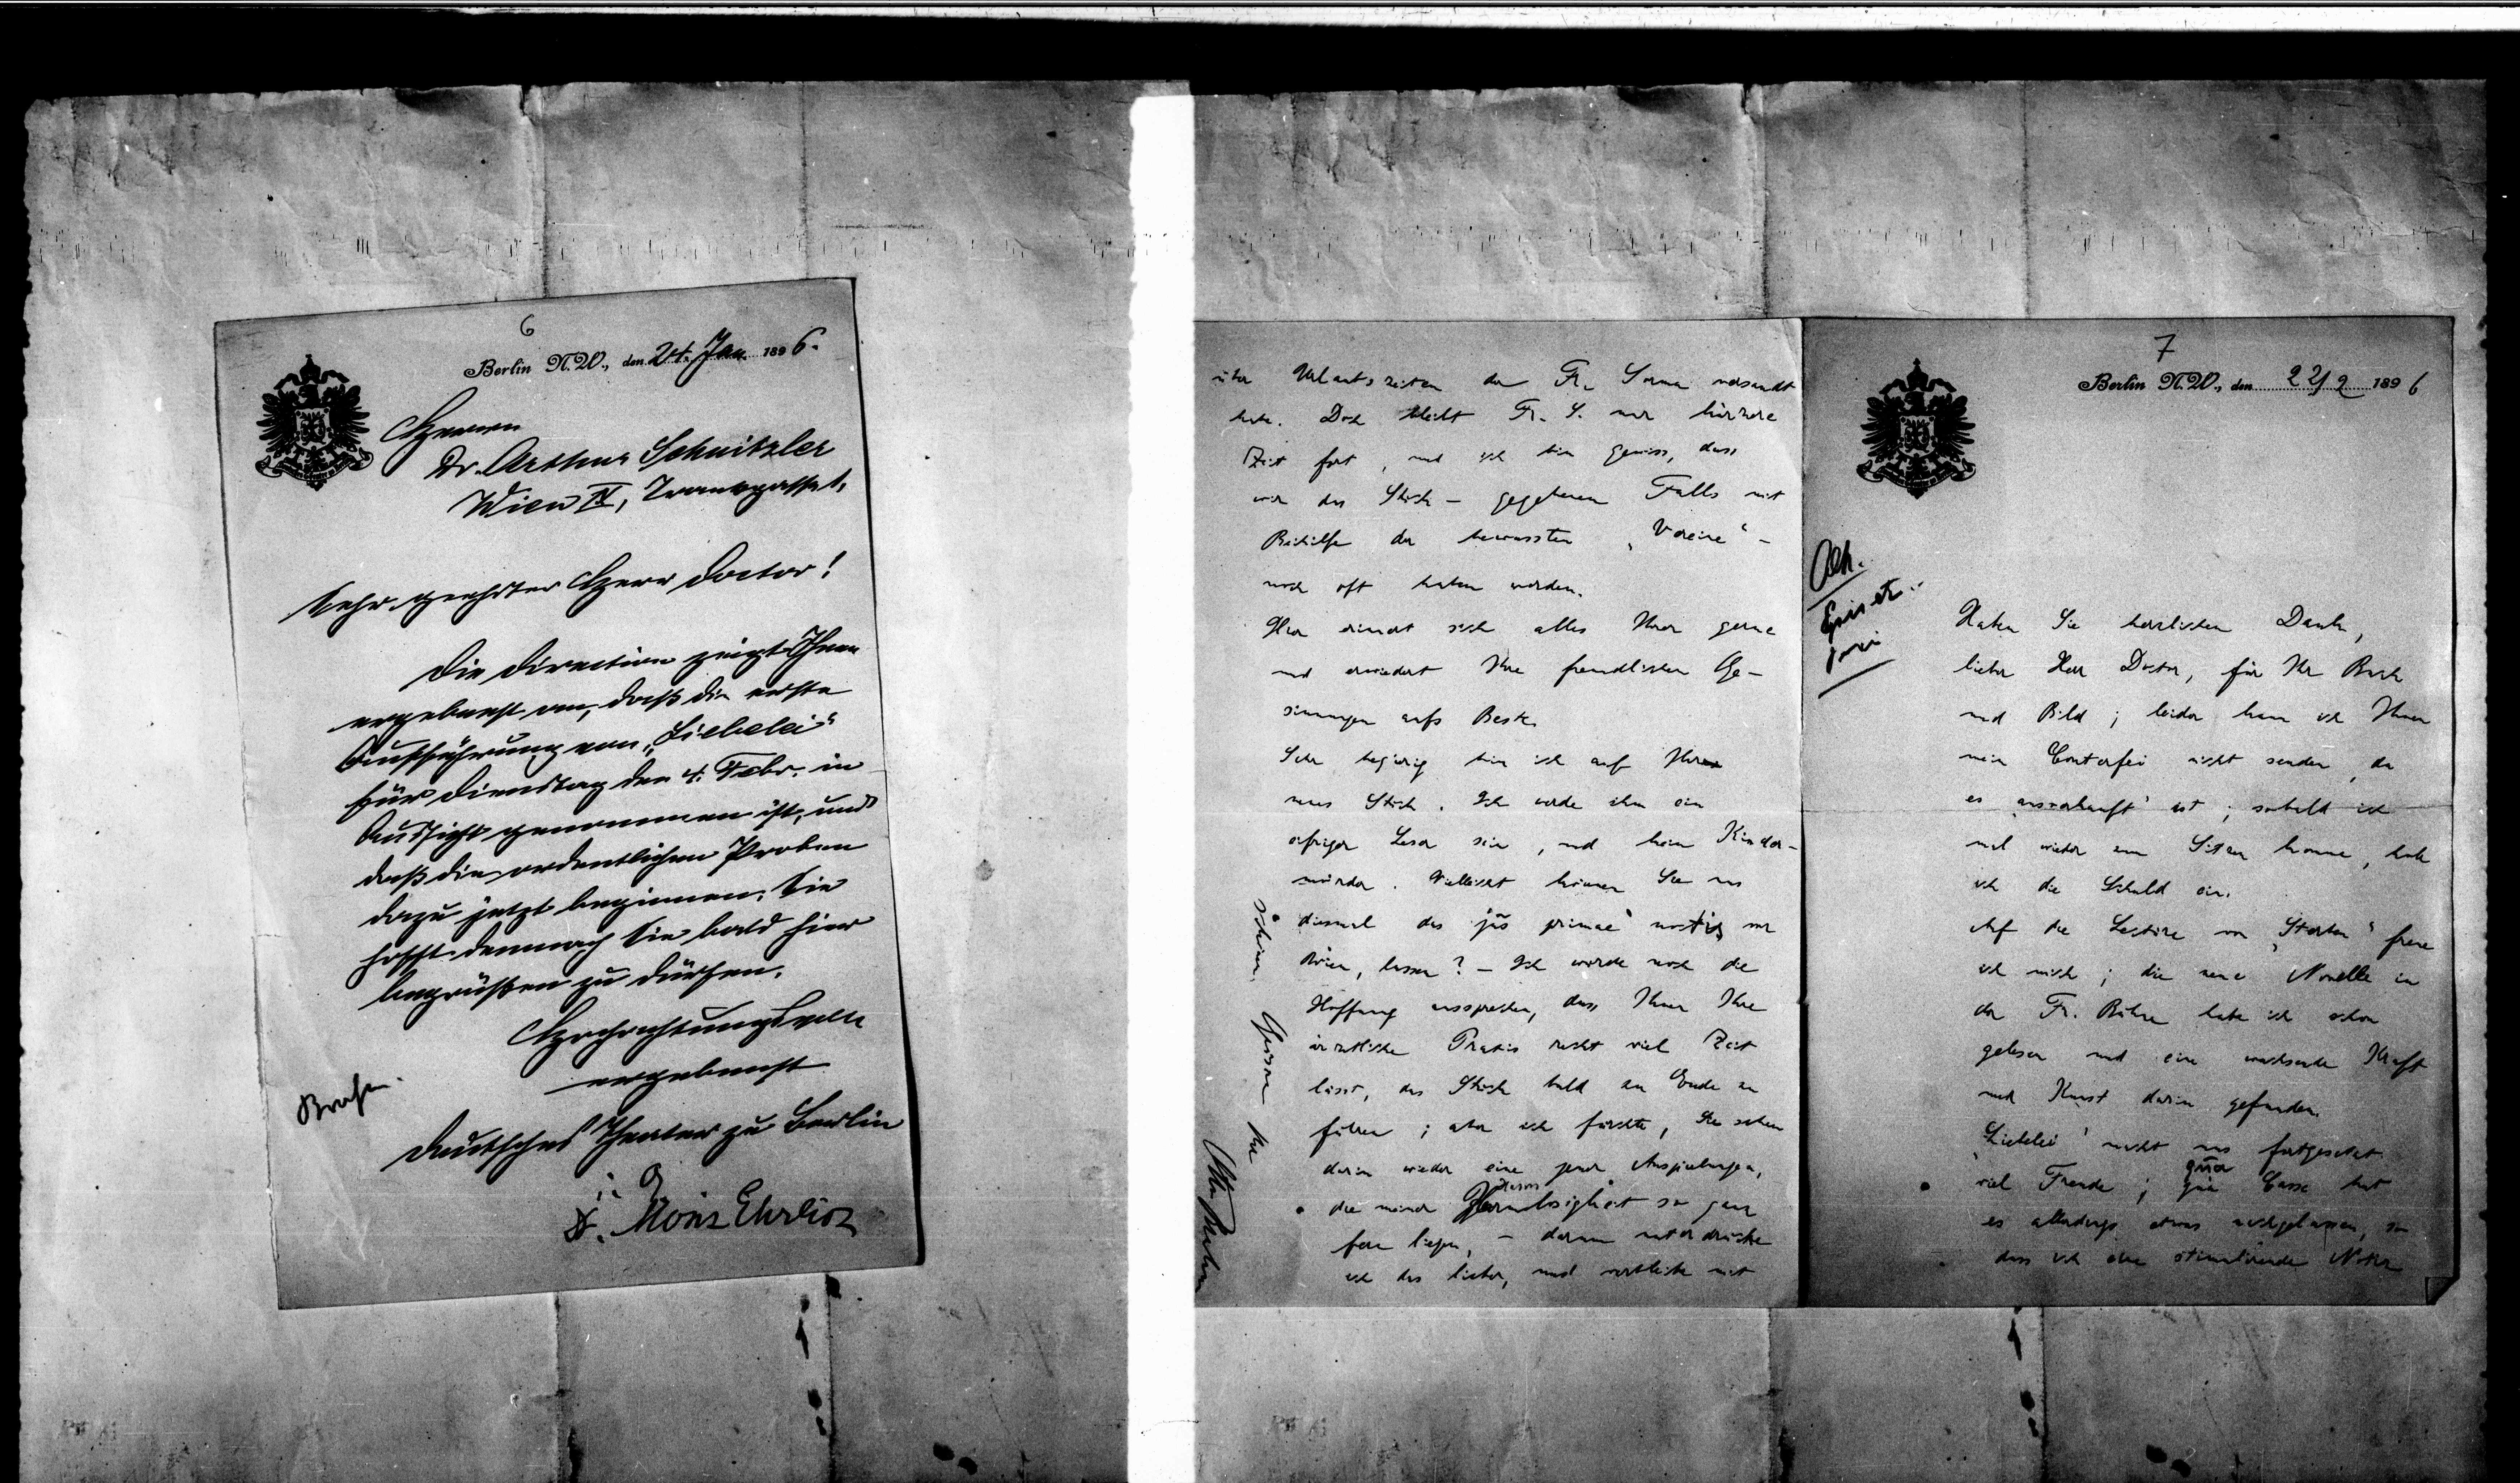 6
Berlin N.W., den 24. Jan. 1896.
Herrn
Dr. Arthur Schnitzler
Wien IX, Frankgasse 1.
Sehr geehrter Herr Doctor!
Die Direction zeigt Ihnen
ergebenst an, daß die erste
Aufführung von „Liebelei“
für Dienstag den 4. Febr. in
Aussicht genommen ist, und
daß die ordentlichen Proben
dazu jetzt beginnen. Sie
hofft demnach Sie bald hier
begrüßen zu dürfen.
Hochachtungsvoll
ergebenst
Brahm.
Deutsches Theater zu Berlin
Moriz Ehrlich
7
Berlin N.W., den 22/2 1896
Haben Sie herzlichen Dank,
lieber Herr Doctor, für Ihr Buch
und Bild; leider kann ich Ihnen
mein Conterfei nicht senden, da
es „ausverkauft“ ist; sobald ich
mal wieder zum Sitzen komme, hole
ich die Schuld ein.
Auf die Lectüre von „Sterben“ freue
ich mich; die neue Novelle in
der Fr. Bühne habe ich schon
gelesen und eine wachsende Kraft
und Kunst darin gefunden.
„Liebelei“ macht uns fortgesetzt
viel Freude; qua Casse hat
qua
es allerdings etwas nachgelassen, so
dass ich eine stimulirende Notiz
über Urlaubszeiten der Fr. Sorma versandt
habe. Doch bleibt Fr. S. nur kürzere
Zeit fort, und ich bin gewiss, dass
wir das Stück – gegebenen Falls mit
Beihilfe der bewussten „Vereine“ –
noch oft haben werden.
Hier erinnert sich alles Ihrer gerne
und erwiedert Ihre freundlichen Ge-
sinnungen aufs Beste.
Sehr begierig bin ich auf Ihr
neues Stück. Ich werde ihm ein
eifriger Leser sein, und kein Kinder-
mörder. Vielleicht können Sie uns
diesmal das jus primae noctis, vor
Wien, lassen? – Ich würde noch die
Hoffnung aussprechen, dass Ihnen Ihre
ärztliche Praxis recht viel Zeit
lässt, das Stück bald zu Ende zu
führen; aber ich fürchte, Sie sehen
darin wieder eine jener Anspielungen,
die meiner Harmlosigkeit so ganz
Harm
fern liegen, – darum unterdrücke
ich das lieber, und verbleibe mit
schönen Grüssen Ihr
Otto Brahm